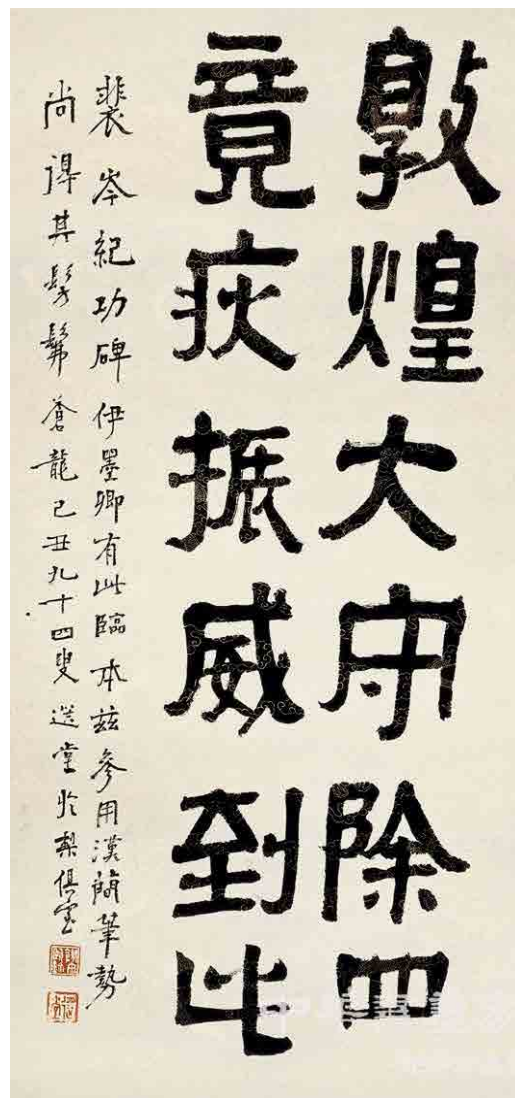 敦煌大守除四
竟疢振威到此
裴岑紀功碑伊墨卿有此臨本茲參用漢簡筆勢
尚得其髣髴蒼龍己丑九十四叟選堂於梨俱室